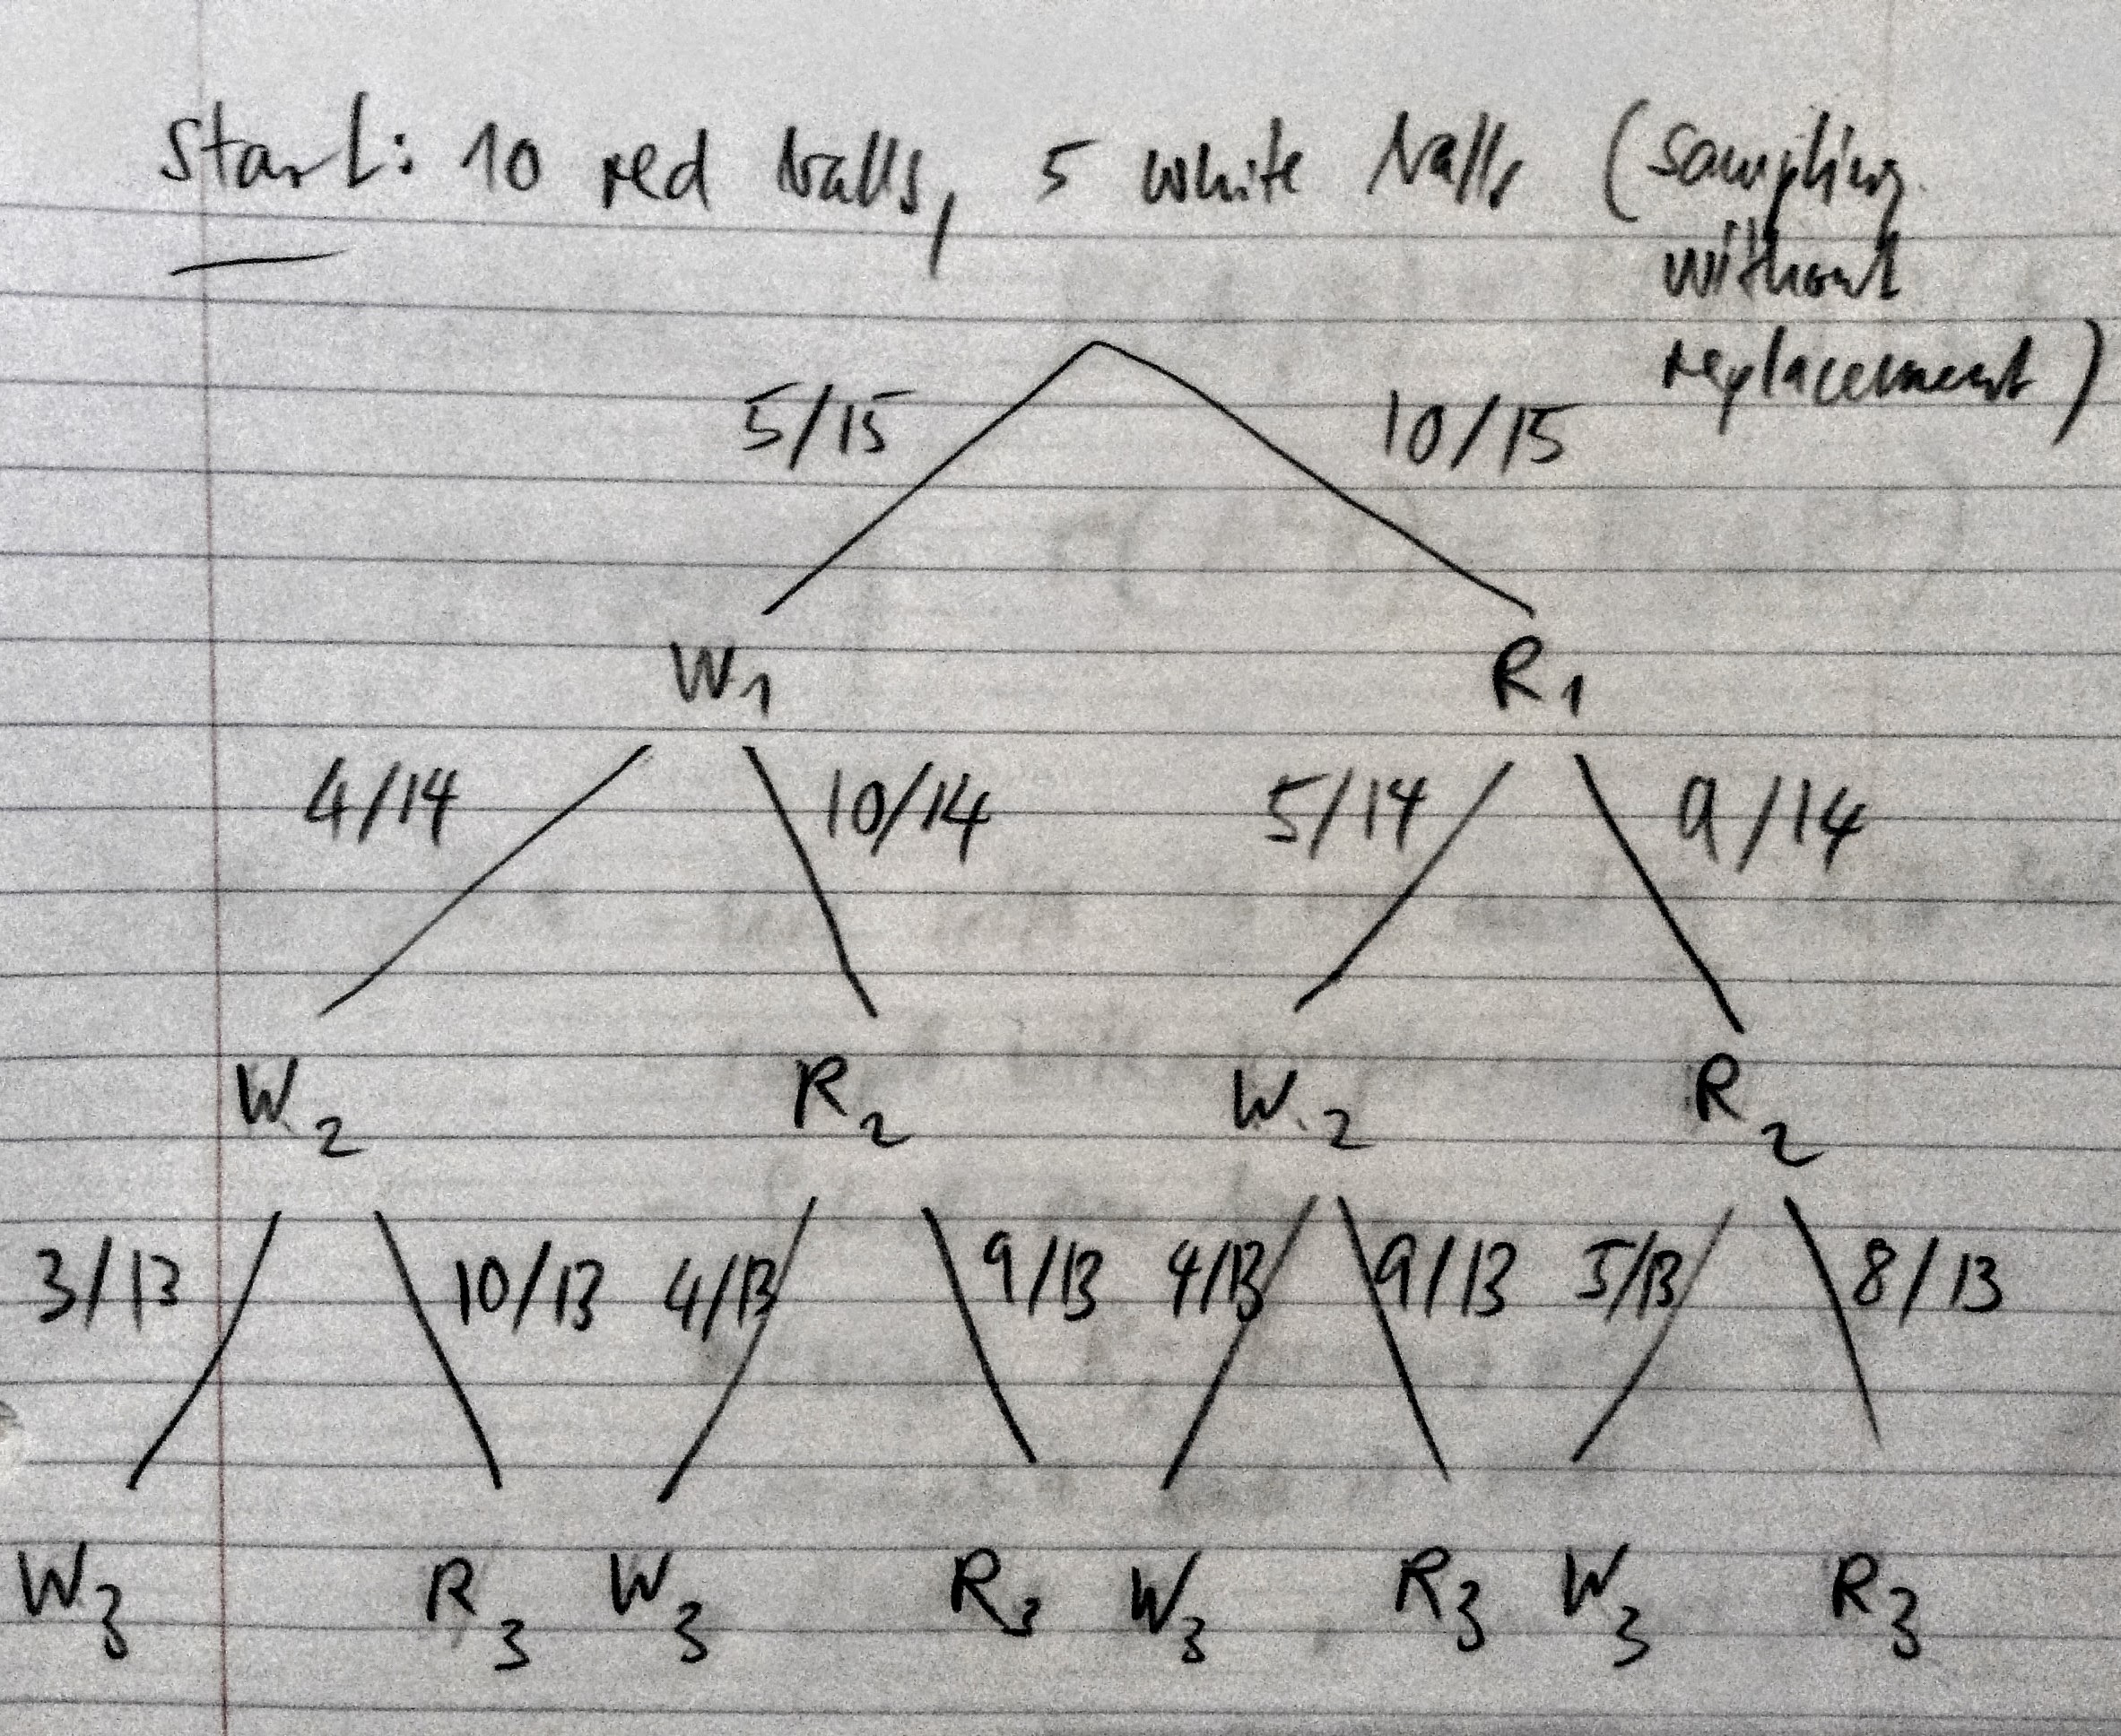 Start: 10 red balls, 5 white balls (sampling
without
replacement)
5/15 10/15
W1 R1
4/14 10/14 5/14 9/14
W2 R2 W2 R2
3/13 10/13 4/13 9/13 4/13 9/13 5/13 8/13
W3 R3 W3 R3 W3 R3 W3 R3